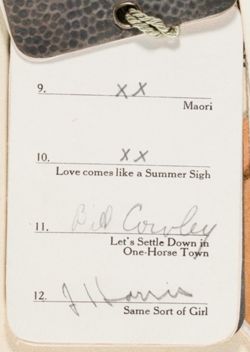 9. XX
Maori
10. XX
Love comes like a Summer Sigh
11. Bill Cowley
Let's Settle Down in
One-Horse Town
12. J Harris
Same Sort of Girl